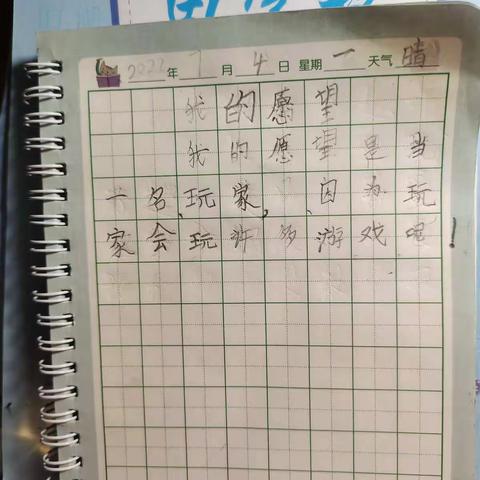 2022年7月4日 星期一 天气晴
我的愿望
我的愿望是当
一名玩家,因为玩
家会玩许多游戏呢!